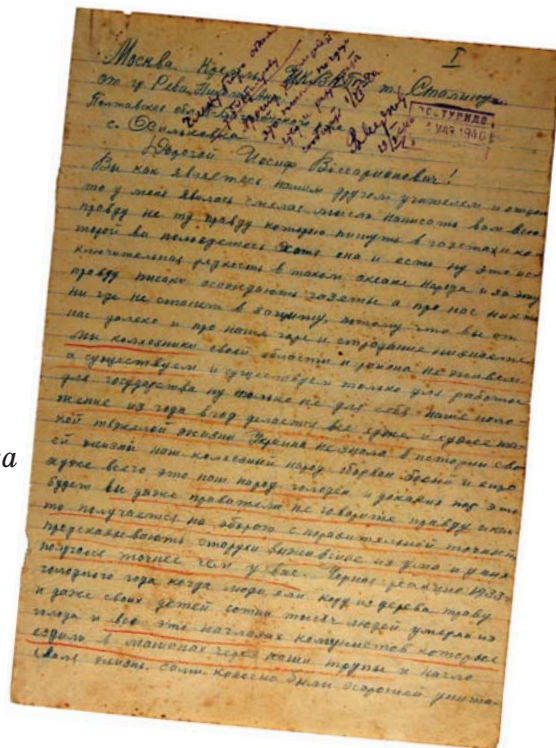 I
Москва Кремль т. Сталину
от гр. Рева
Полтавское
с. Оснияковка
ПОСТУПИЛО
МАЯ 1940
Дорогой Иосиф Виссарионович!
Вы как являетесь нашим другом учителем и отцом
то у меня явилась смелая мысль написать вам всю
правду не ту правду которую пишут в газетах и ко
торой вы пользуетесь хотя она и есть ну это ис
ключительная редкость в таком океане народа и за эту
правду писаки осаждают газеты а про нас никто
ни где не станет в защиту, потому что вы от
нас далеко и про наше горе и страдание не знаете
мы колхозники своей области и района не живем
а существуем и существуем только для работы
для государства ну только не для себя наше поло
жение из года в год делается все хуже и хуже та
кой тяжелой жизни Украина не знала в истории сво
ей жизни наш колхозный народ оборван босый и
хуже всего это наш народ голоден и до каких пор это
будет вы даже правители не говорите правду
то получается на оборот с поразительной точность
предсказывают старухи выжившие из ума и у них
получая точнее чем у вас. 1933
голодного года когда люди ели кору из дерева траву
и даже своих детей сотни тысяч людей умерли из
голода и все это на глазах коммунистов которые
ездили в машинах через наши трупы и нагло
жизнь. сами
ва